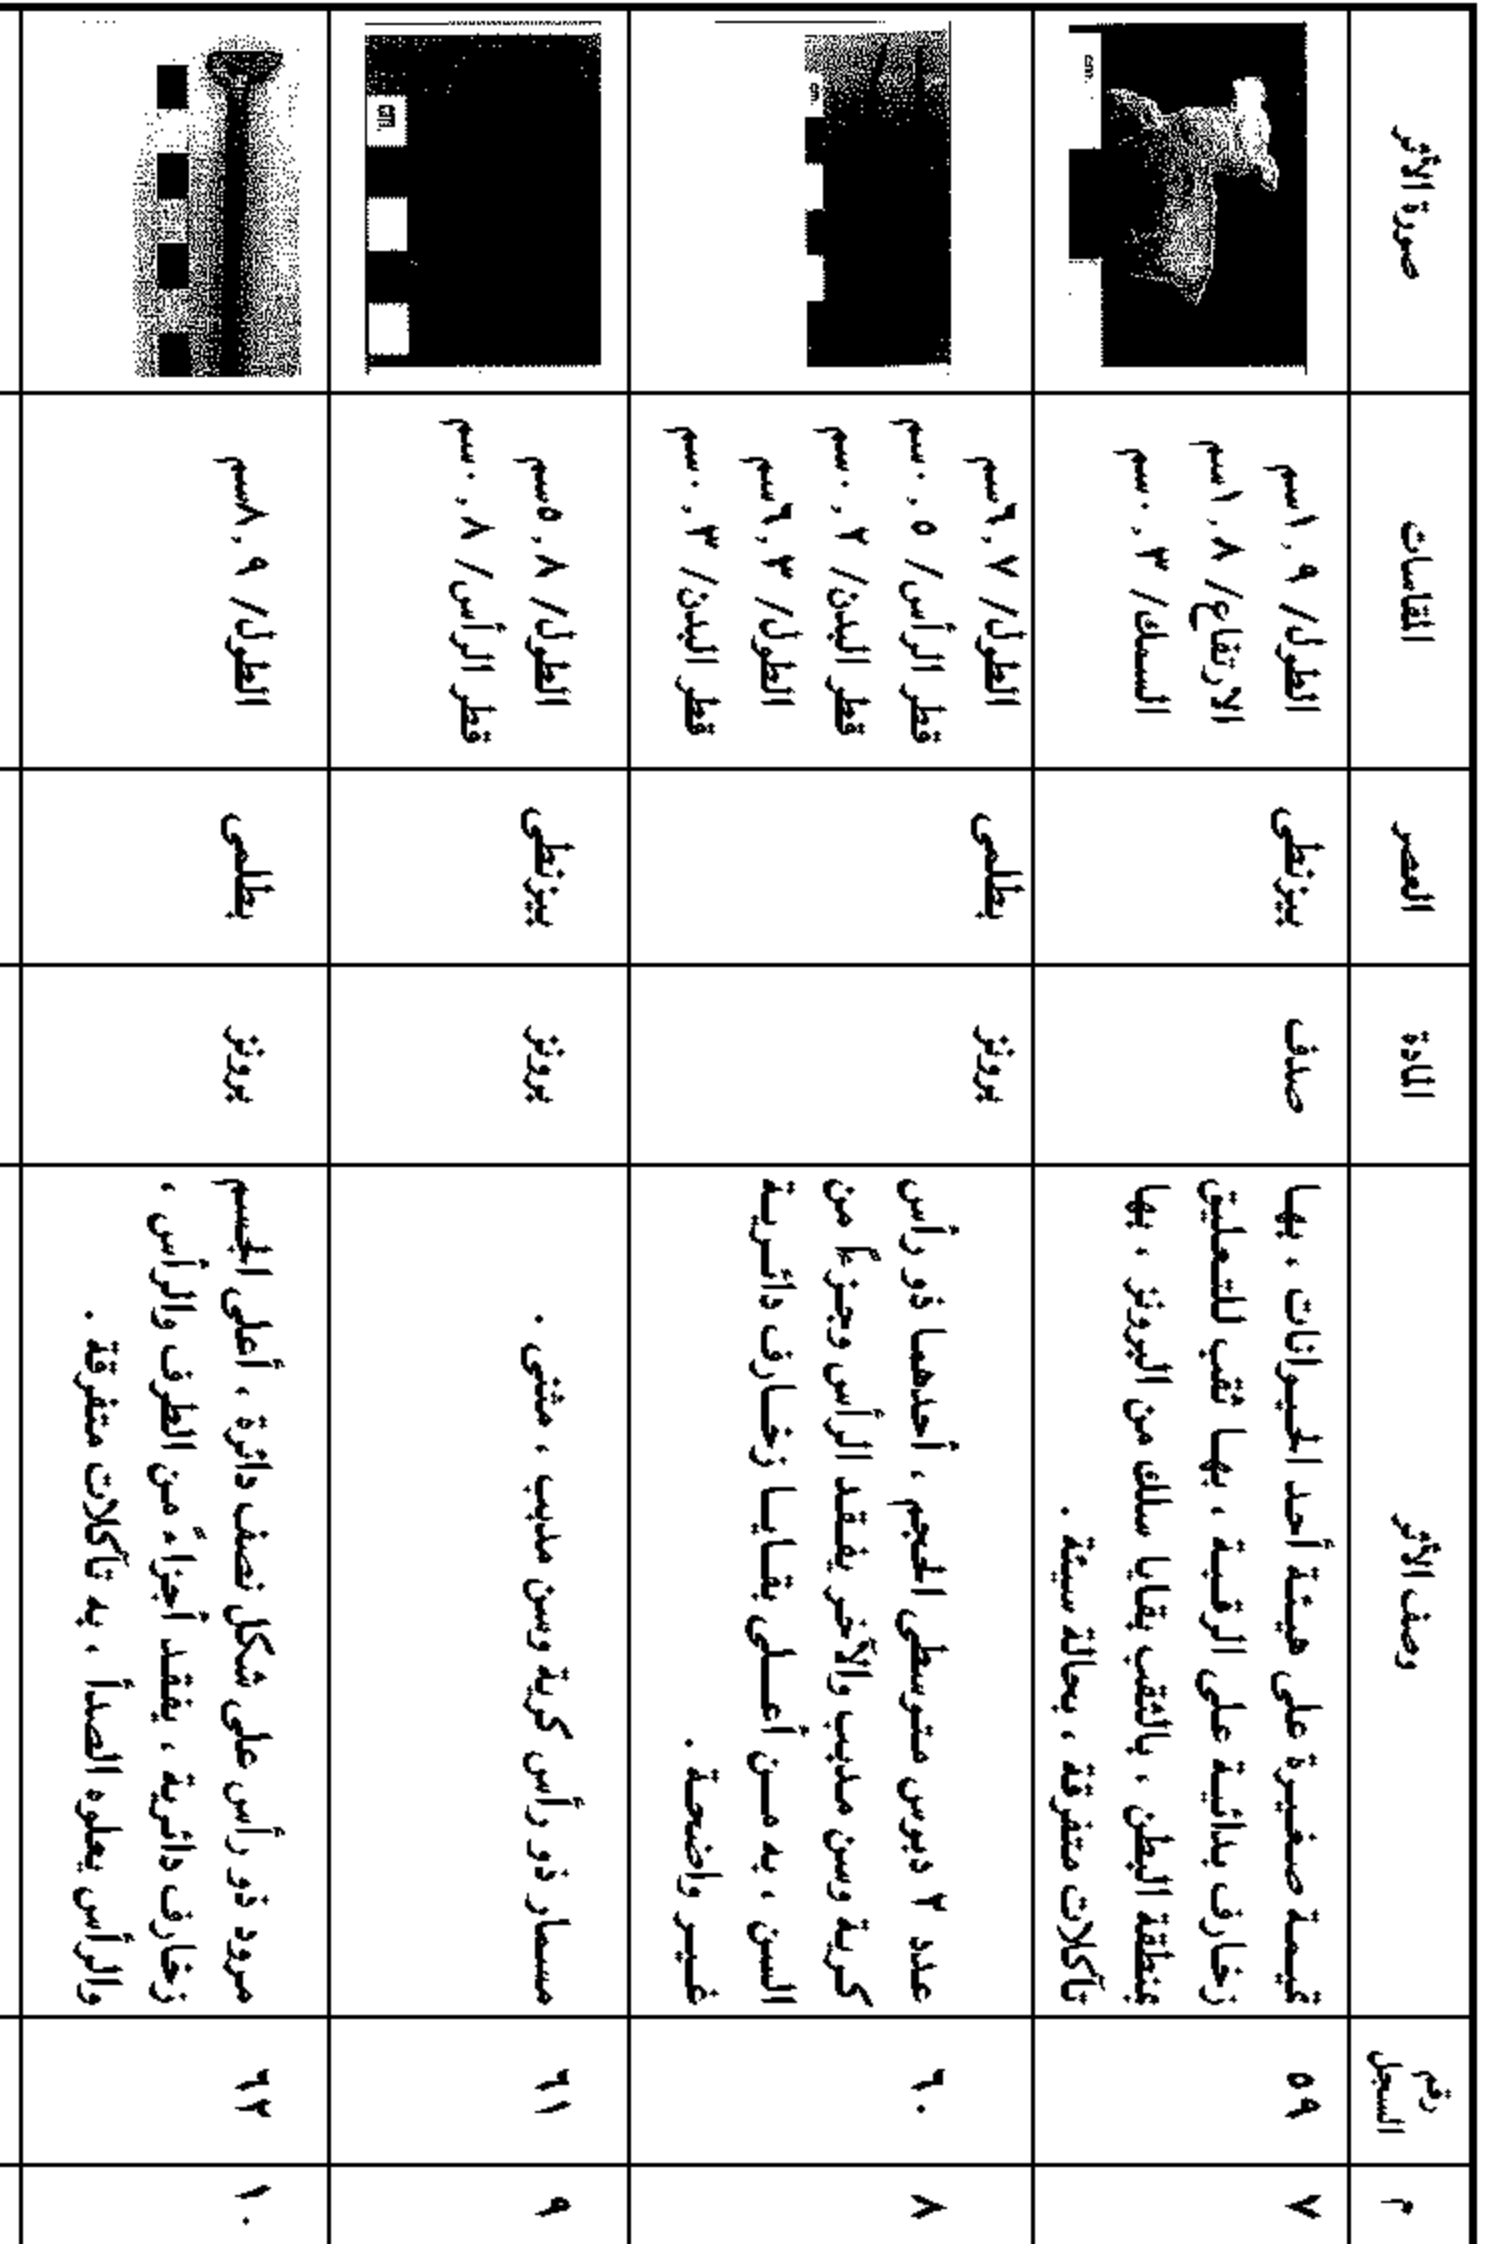 م
رقم
السجل
وصف الأثر
المادة
العصر
المقاسات
صورة الأثر
٧
٥٩
تميمة صغيرة على هيئة أحد الحيوانات ، بها
زخارف بدائية على الرقبة ، بها ثقب للتعليق
بمنطقة البطن ، بالثقب بقايا سلك من البرونز ، بها
تآكلات متفرقة ، بحالة سيئة .
صدف
بيزنطى
الطول/ ١,٩سم
الارتفاع/ ١,٨سم
السمك/ ٠,٣سم
cm.
٨
٦٠
عدد ٢ دبوس متوسطى الحجم ، أحدهما ذو رأس
كرية وسن مدبب والآخر يفقد الرأس وجزءاً من
السن ، به من أعلى بقايا زخارف دائرية
غير واضحة .
برونز
بطلمى
الطول/ ٦,٧سم
قطر الرأس/ ٠,٥سم
قطر البدن/ ٠,٢سم
الطول/ ٦,٣سم
قطر البدن/ ٠,٣سم
٩
٦١
مسمار ذو رأس كرية وسن مدبب ، مثنى .
برونز
بيزنطى
الطول/ ٥,٨سم
قطر الرأس/ ٠,٨سم
cm.
١٠
٦٢
مرود ذو رأس على شكل نصف دائرة ، أعلى الجسم
زخارف دائرية ، يفقد أجزاء من الطرف والرأس ،
والرأس يعلوه الصدأ ، به تآكلات متفرقة .
برونز
بطلمى
الطول/ ٨,٩سم